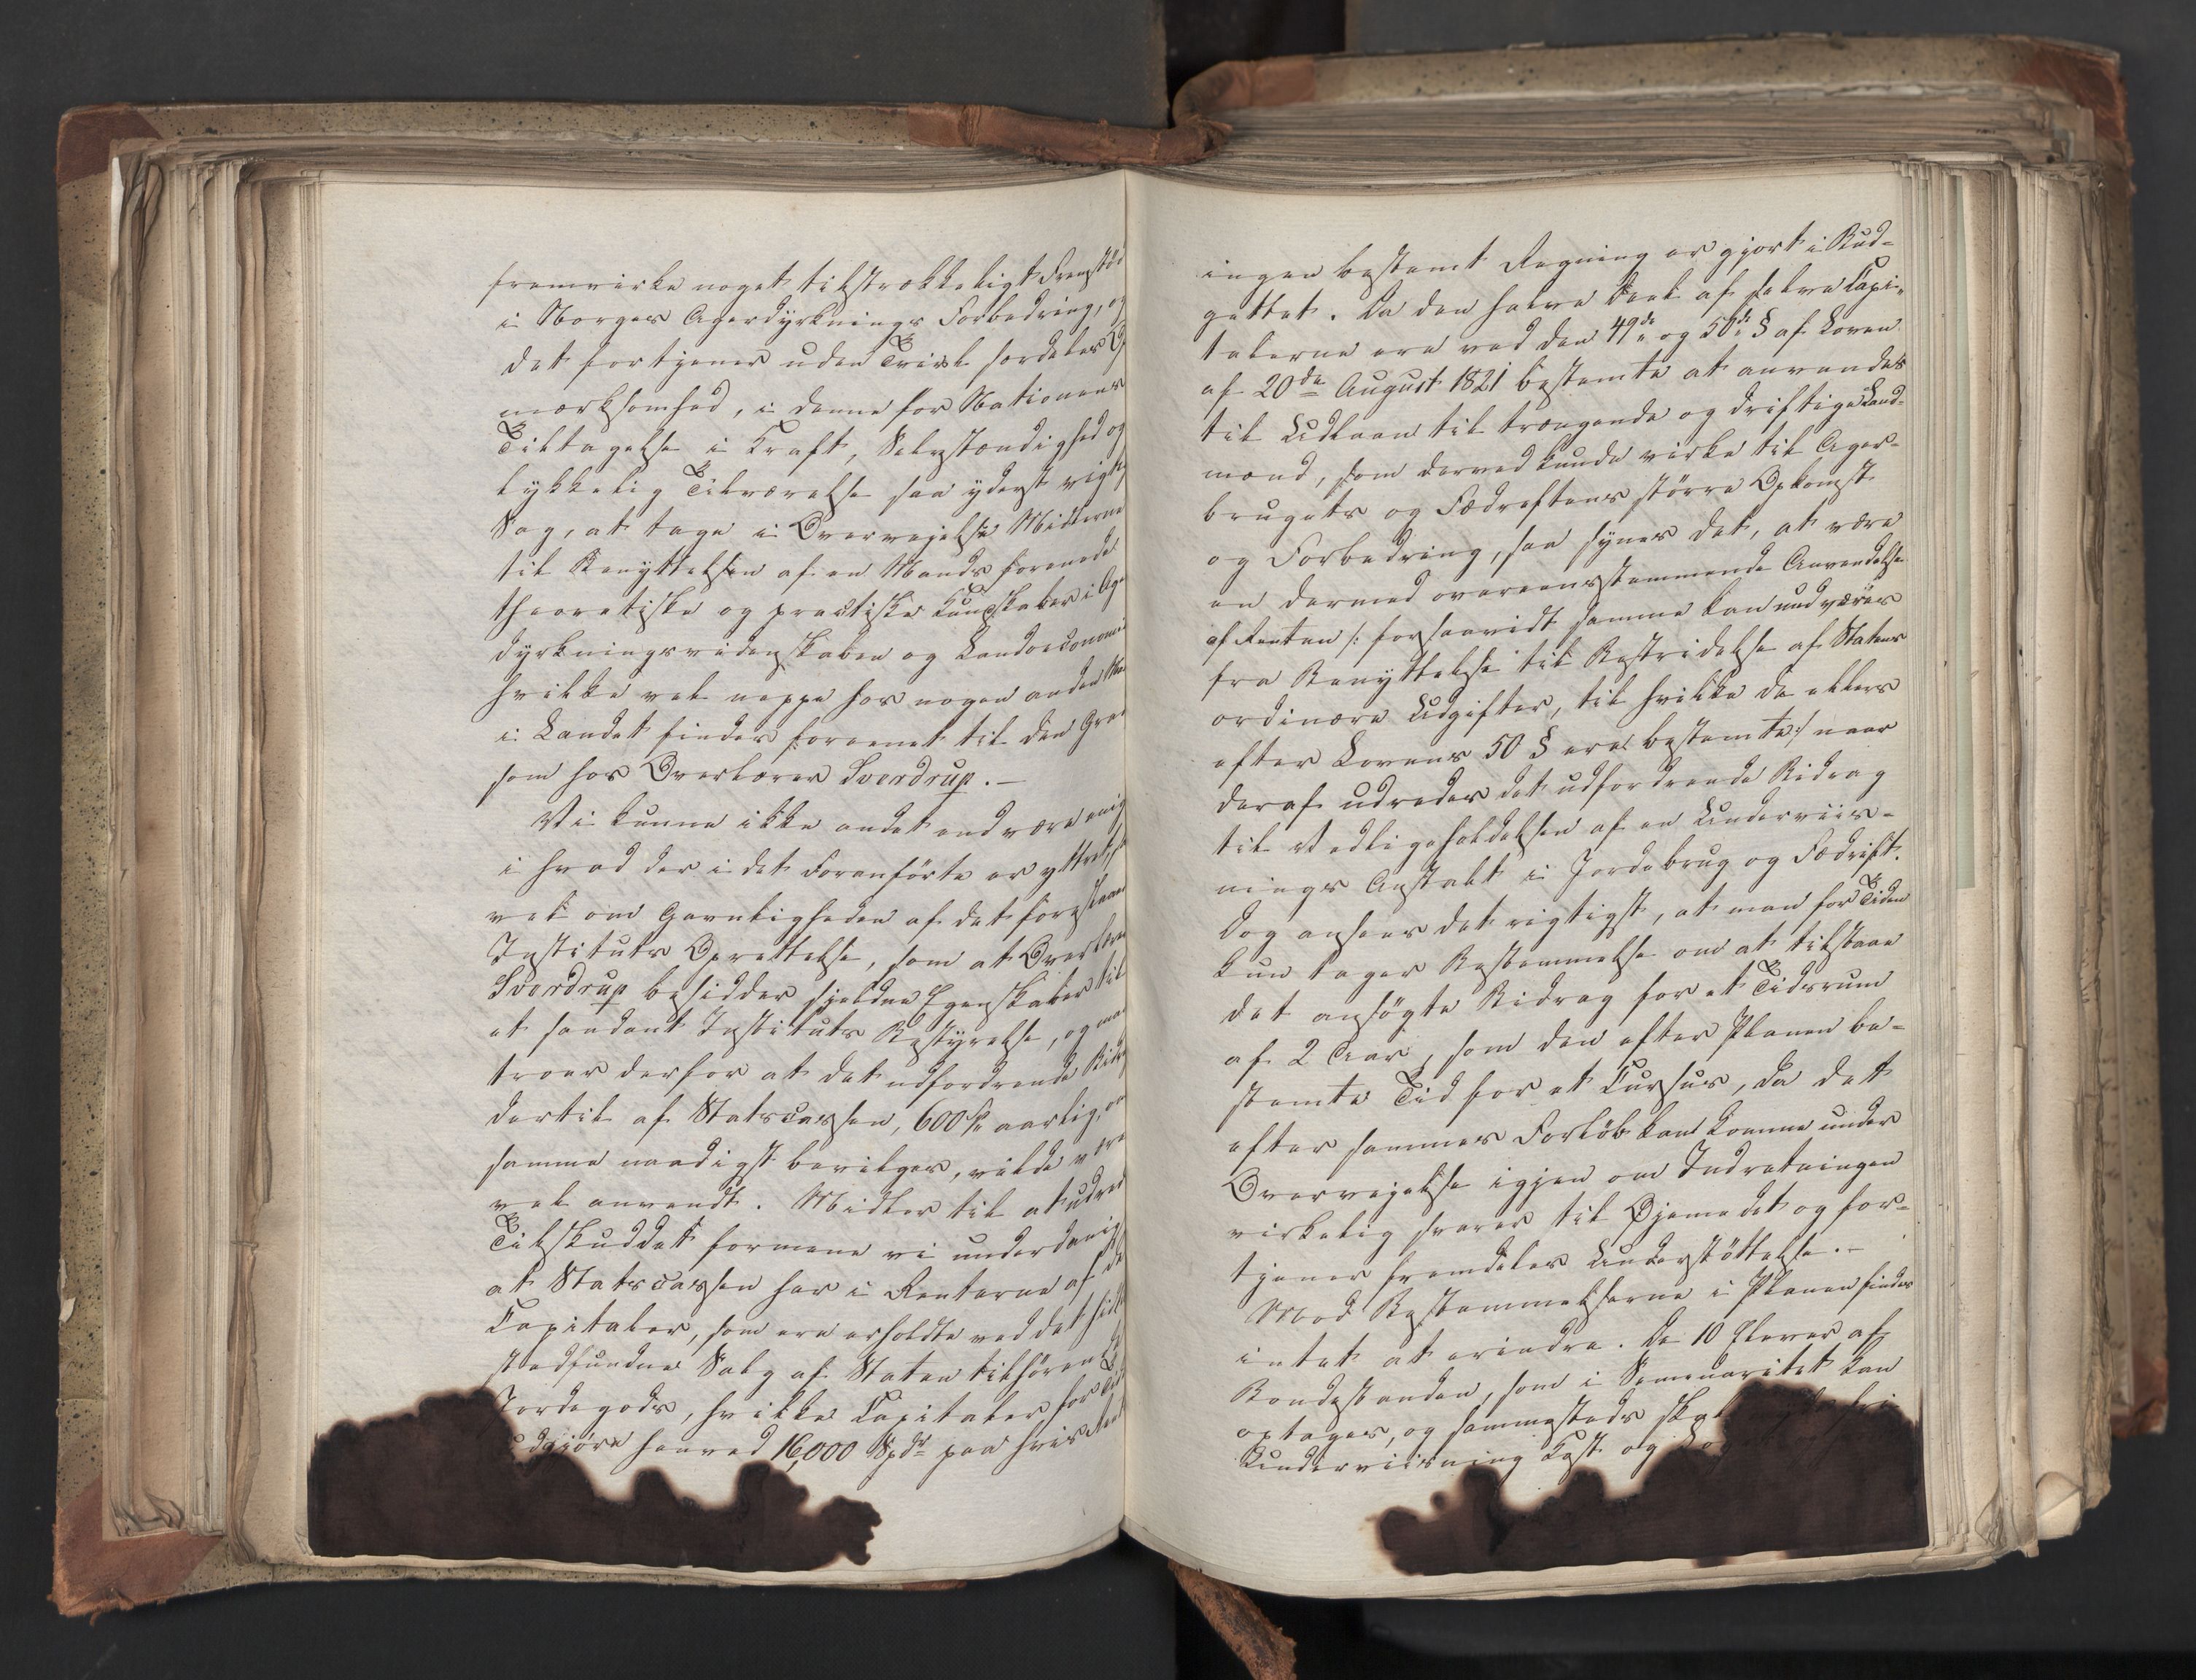 fremvirke noget tilstrækkeligt Fremskrid
i Norges Agerdyrknings Forbedring, og
det fortjener uden Tvivl særdeles Op
mærksomhed, i denne for Nationens
Tiltagelse i Kraft, Selvstændighed og
lykkelig Tilværelse saa yderst vigtig
Sag, at tage i Overvejelse Midlerne
til Benyttelsen af en Mands forenede
theoretiske og practiske Kundskaber i Ager
dyrkningsvidenskaben og Landoeconomie
hvilke vel neppe hos nogen anden Mand
i Landet findes forenet til den Grad
som hos Overlærer Sverdrup. —
Vi kunne ikke andet end være enig
i hvad der i det Foranførte er yttret, saa
vel om Gavnligheden af det foreslaaede
Instituts Oprettelse, som at Overlærer
Sverdrup besidder sjeldne Egenskaber til
et saadant Instituts Bestyrelse, og man
troer derfor at det udfordrende Bidrag
dertil af Statscassen, 600 Sp aarlig, om
samme naadigst bevilges, vilde være
vel anvendt. Midler til at udrede
Tilskuddet formene vi underdanigst
at Statscassen har i Renterne af de
Capitaler, som ere erholdte ved det hidtil
stedfundne Salg af Staten tilhørende
Jordegods, hvilke Capitaler for Tiden
udgjøre henved 16,000 Spdr paa hvis Rente
ingen bestemt Regning er gjort i Bud-
gettet. Da den halve Deel af selve Capi-
talerne ere ved den 49de og 50de § af Loven
af 20de August 1821 bestemte at anvendes
til Udlaan til trængende og driftige Land-
mænd, som derved kunde virke til Ager-
brugets og Fædriftens større Opkomst
og Forbedring, saa synes det, at være
en dermed overeensstemmende Anvendelse
af Renten /: forsaavidt samme kan undværes
fra Benyttelse til Bestridelse af Statens
ordinære Udgifter, til hvilke de ellers
efter Lovens 50 § ere bestemte :/ naar
deraf udredes det udfordrende Bidrag
til Vedligeholdelsen af en Underviis-
nings Anstalt i Jordebrug og Fædrift.
Dog ansees det rigtigst, at man for Tiden
kun tager Bestemmelse om at tilstaae
det ansøgte Bidrag for et Tidsrum
af 2 Aar, som den efter Planen be-
stemte Tid for et Cursus, da det
efter sammes Forløb kan komme under
Overvejelse igjen om Indretningen
virkelig svarer til Øjemedet og for-
tjener fremdeles Understøttelse. —
Mod Bestemmelserne i Planen findes
intet at erindre. De 10 Elever af
Bondestanden, som i Semenariet kan
optages, og sammesteds
Underviisning Kost og